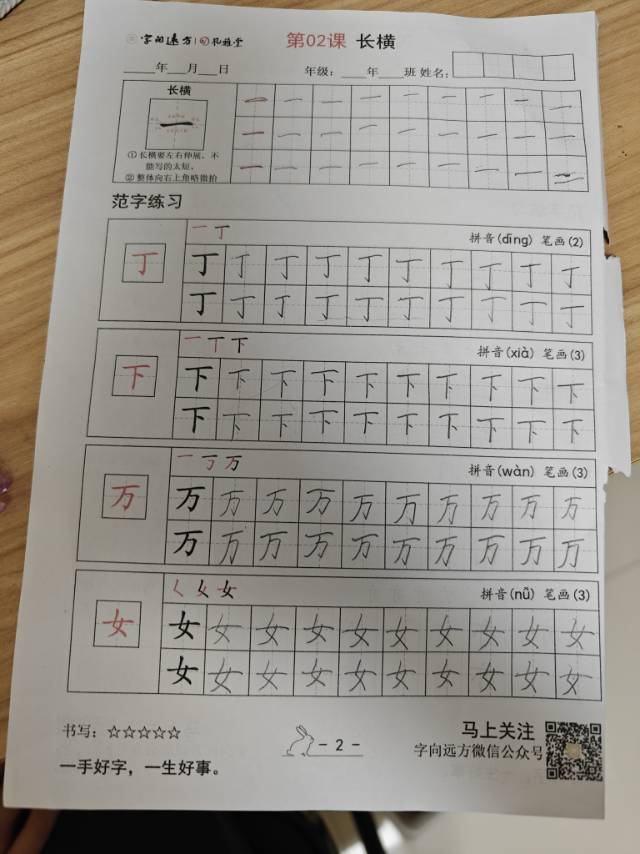 字向远方 孔雅堂 第02课 长横
____年___月___日 年级：____年____班 姓名：
长横
① 长横要左右伸展，不
能写的太短。
② 整体向右上角略微抬
范字练习
一 丁 拼音(dīng) 笔画(2)
丁 丁 丁 丁 丁 丁 丁 丁 丁 丁 丁
丁 丁 丁 丁 丁 丁 丁 丁 丁 丁
一 丅 下 拼音(xià) 笔画(3)
下 下 下 下 下 下 下 下 下 下 下
下 下 下 下 下 下 下 下 下 下
一 丁 万 拼音(wàn) 笔画(3)
万 万 万 万 万 万 万 万 万 万 万
万 万 万 万 万 万 万 万 万 万
ㄑ 乆 女 拼音(nǚ) 笔画(3)
女 女 女 女 女 女 女 女 女 女 女
女 女 女 女 女 女 女 女 女 女
书写：☆☆☆☆☆
一手好字，一生好事。
- 2 -
马上关注
字向远方微信公众号